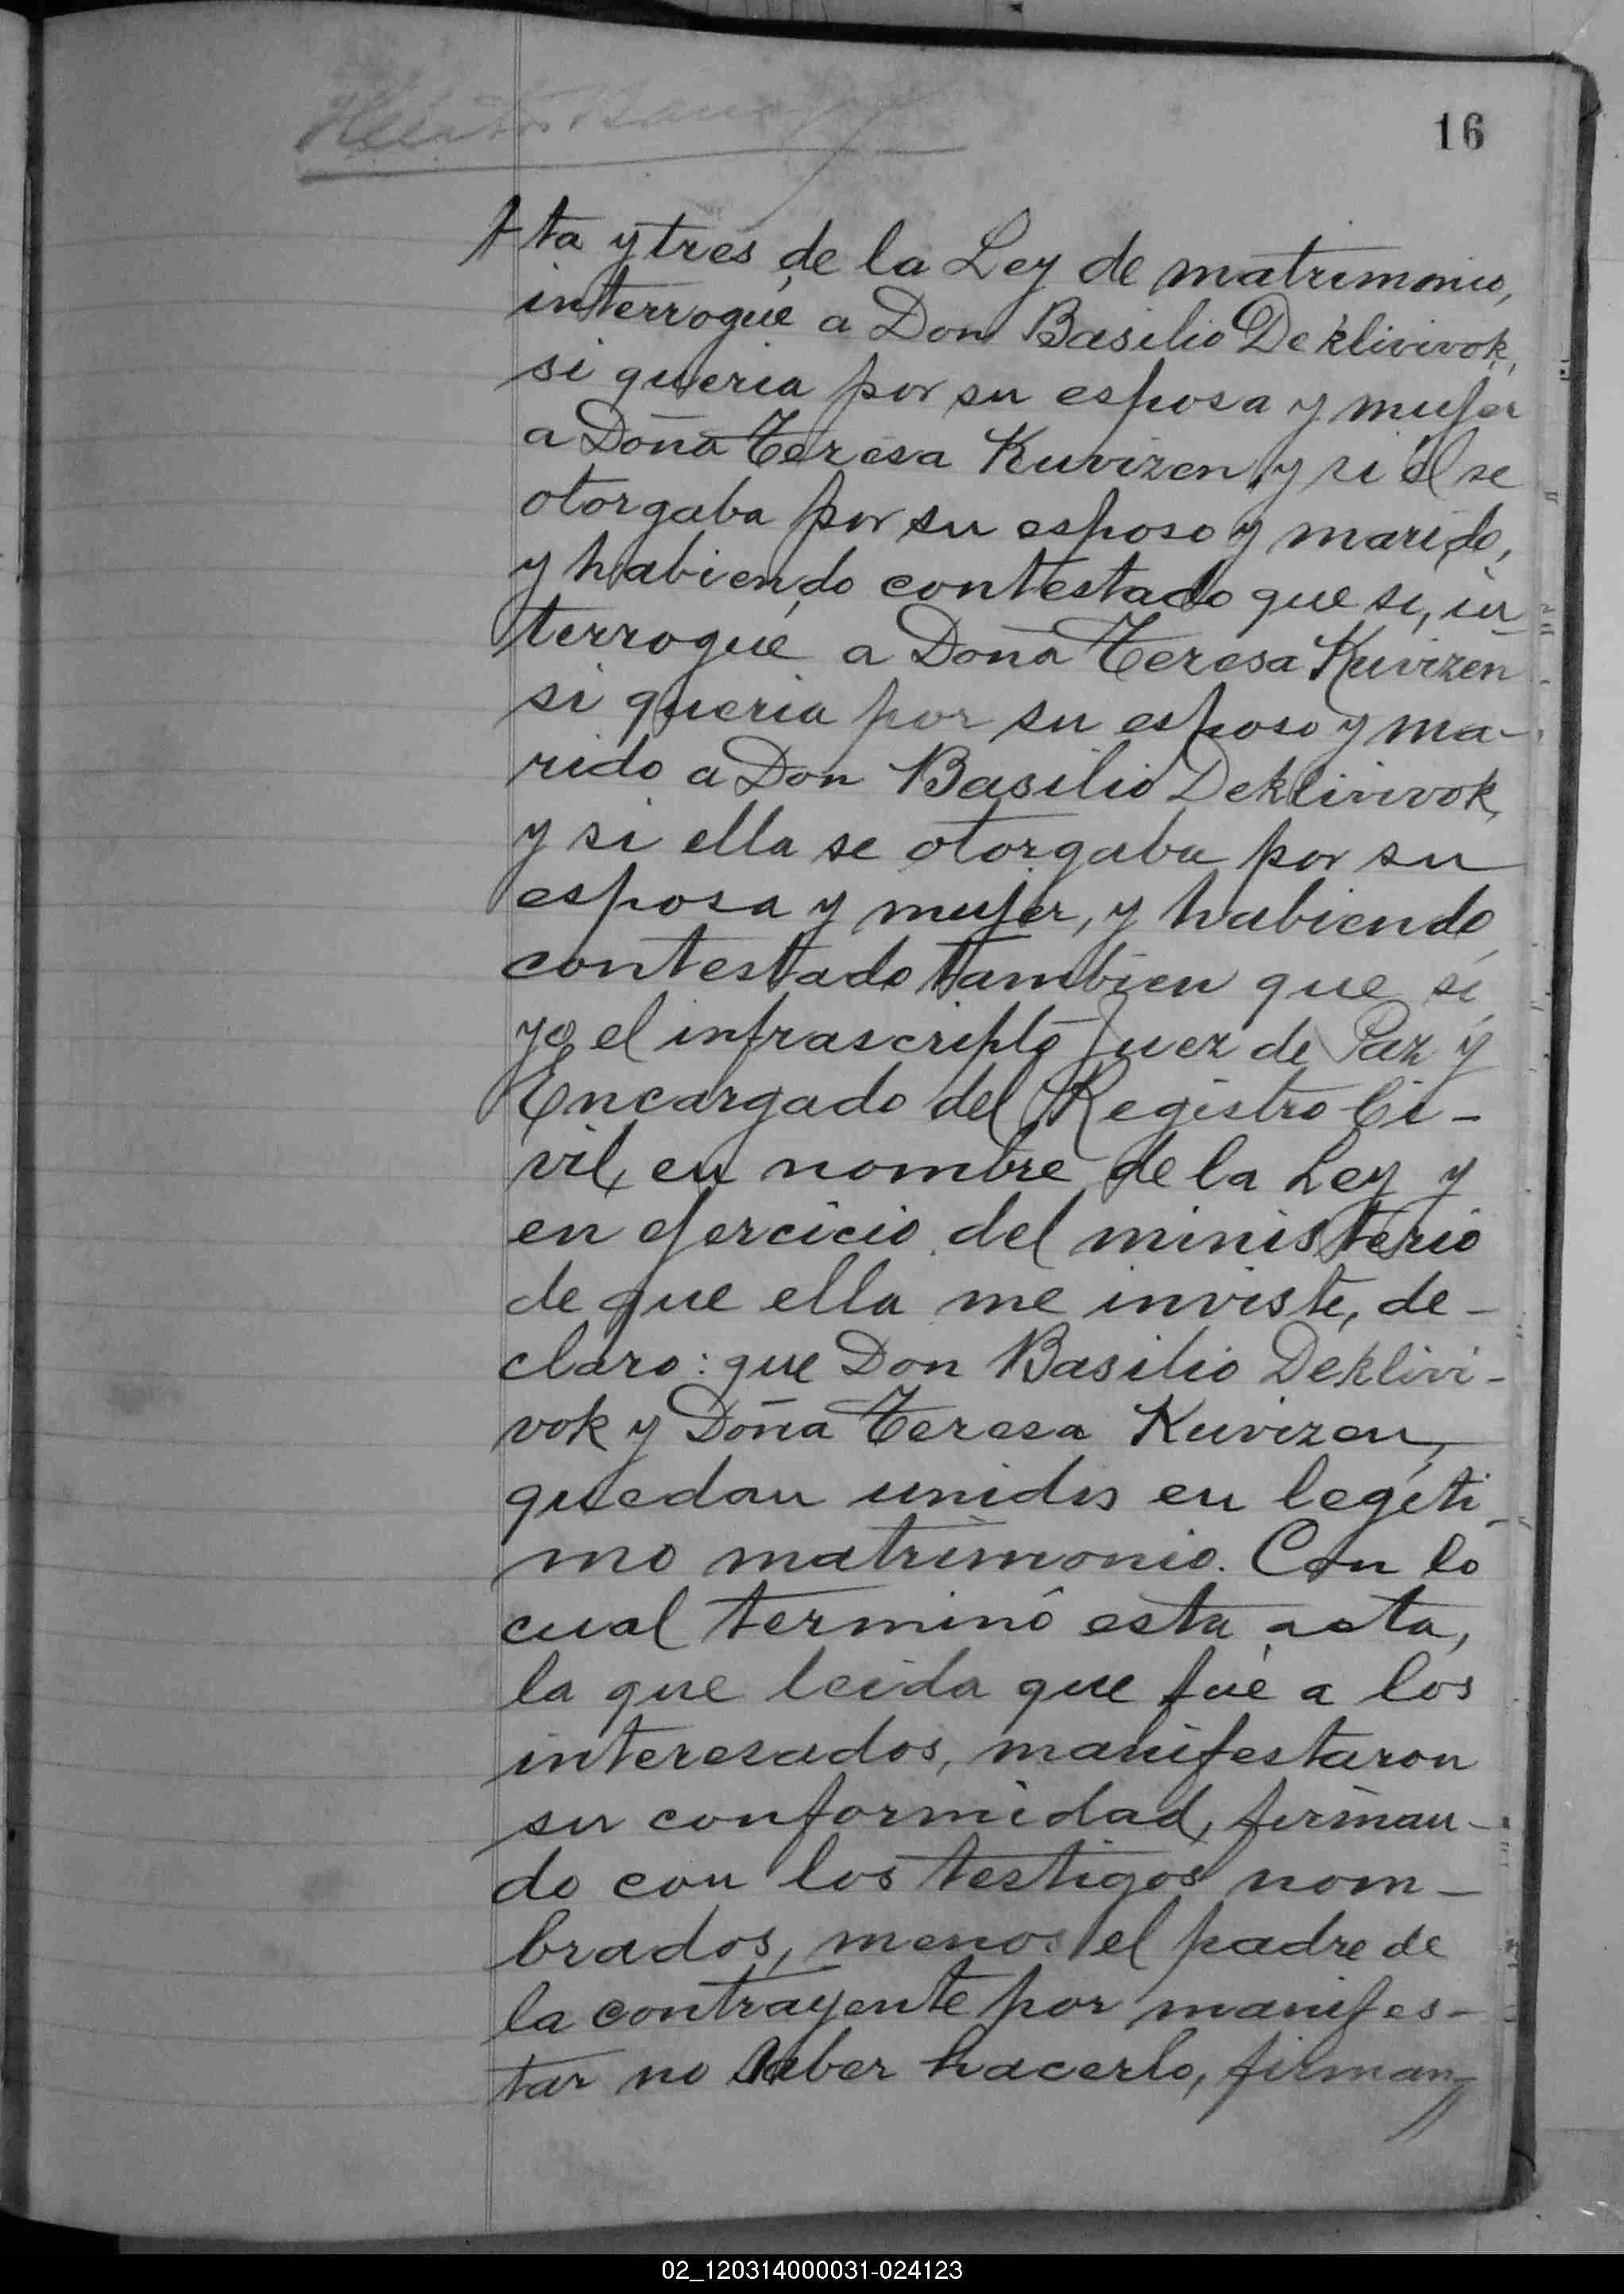 16
ta y tres de la Ley de matrimonio,
interrogué a Don Basilio Deklivivok,
si queria por su esposa y mujer
a Doña Teresa Kuvizen, y si él se
otorgaba por su esposo y marido,
y habiendo contestado que si, in
terrogué a Doña Teresa Kuvizen
si queria por su esposo y ma-
rido a Don Basilio Deklivivok,
y si ella se otorgaba por su
esposa y mujer, y habiendo
contestado tambien que si,
yo el infrascripto Juez de Paz y
Encargado del Registro Ci-
vil, en nombre de la Ley y
en ejercicio del ministerio
de que ella me inviste, de-
claro: que Don Basilio Deklivi-
vok y Doña Teresa Kuvizen,
quedan unidos en legíti-
mo matrimonio. Con lo
cual terminó esta acta,
la que leida que fué a los
interesados, manifestaron
su conformidad, firman-
do con los testigos nom-
brados, menos el padre de
la contrayente por manifes-
tar no saber hacerlo, firman
02_120314000031-024123